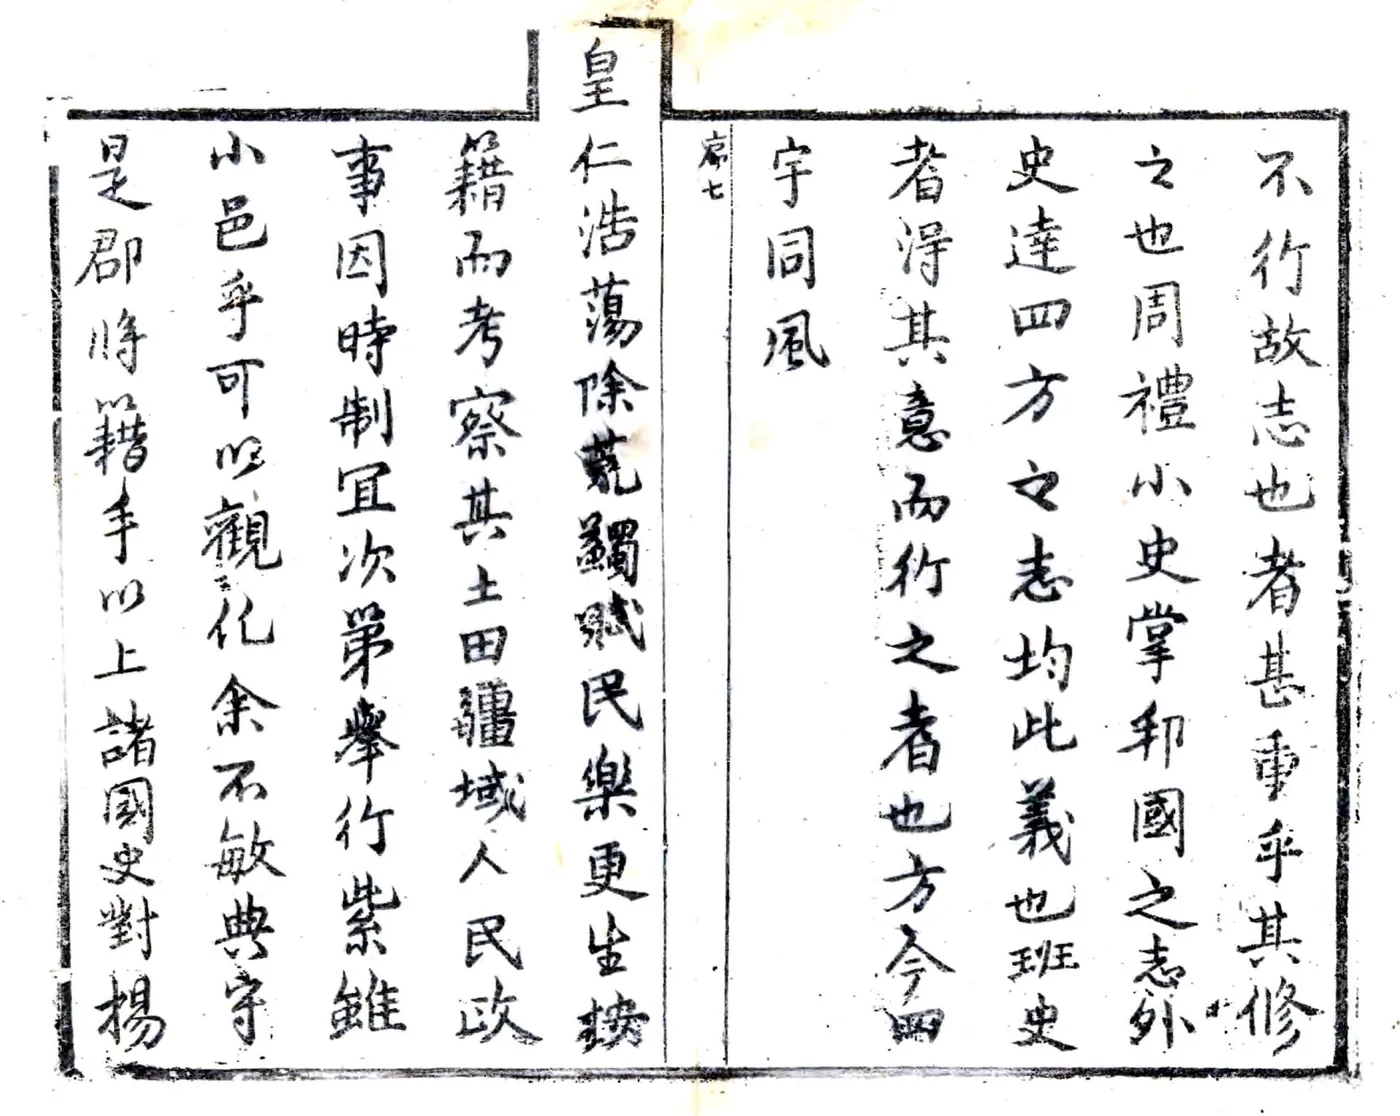 不行故志也者甚重乎其修
之也周禮小史掌邦國之志外
史達四方之志均此義也班史
者得其意而行之者也方今四
宇同風
序七
皇仁浩蕩除荒蠲賦民樂更生按
籍而考察其土田疆域人民政
事因時制宜次第舉行紫雖
小邑乎可以觀化余不敏典守
是郡將籍手以上諸國史對揚